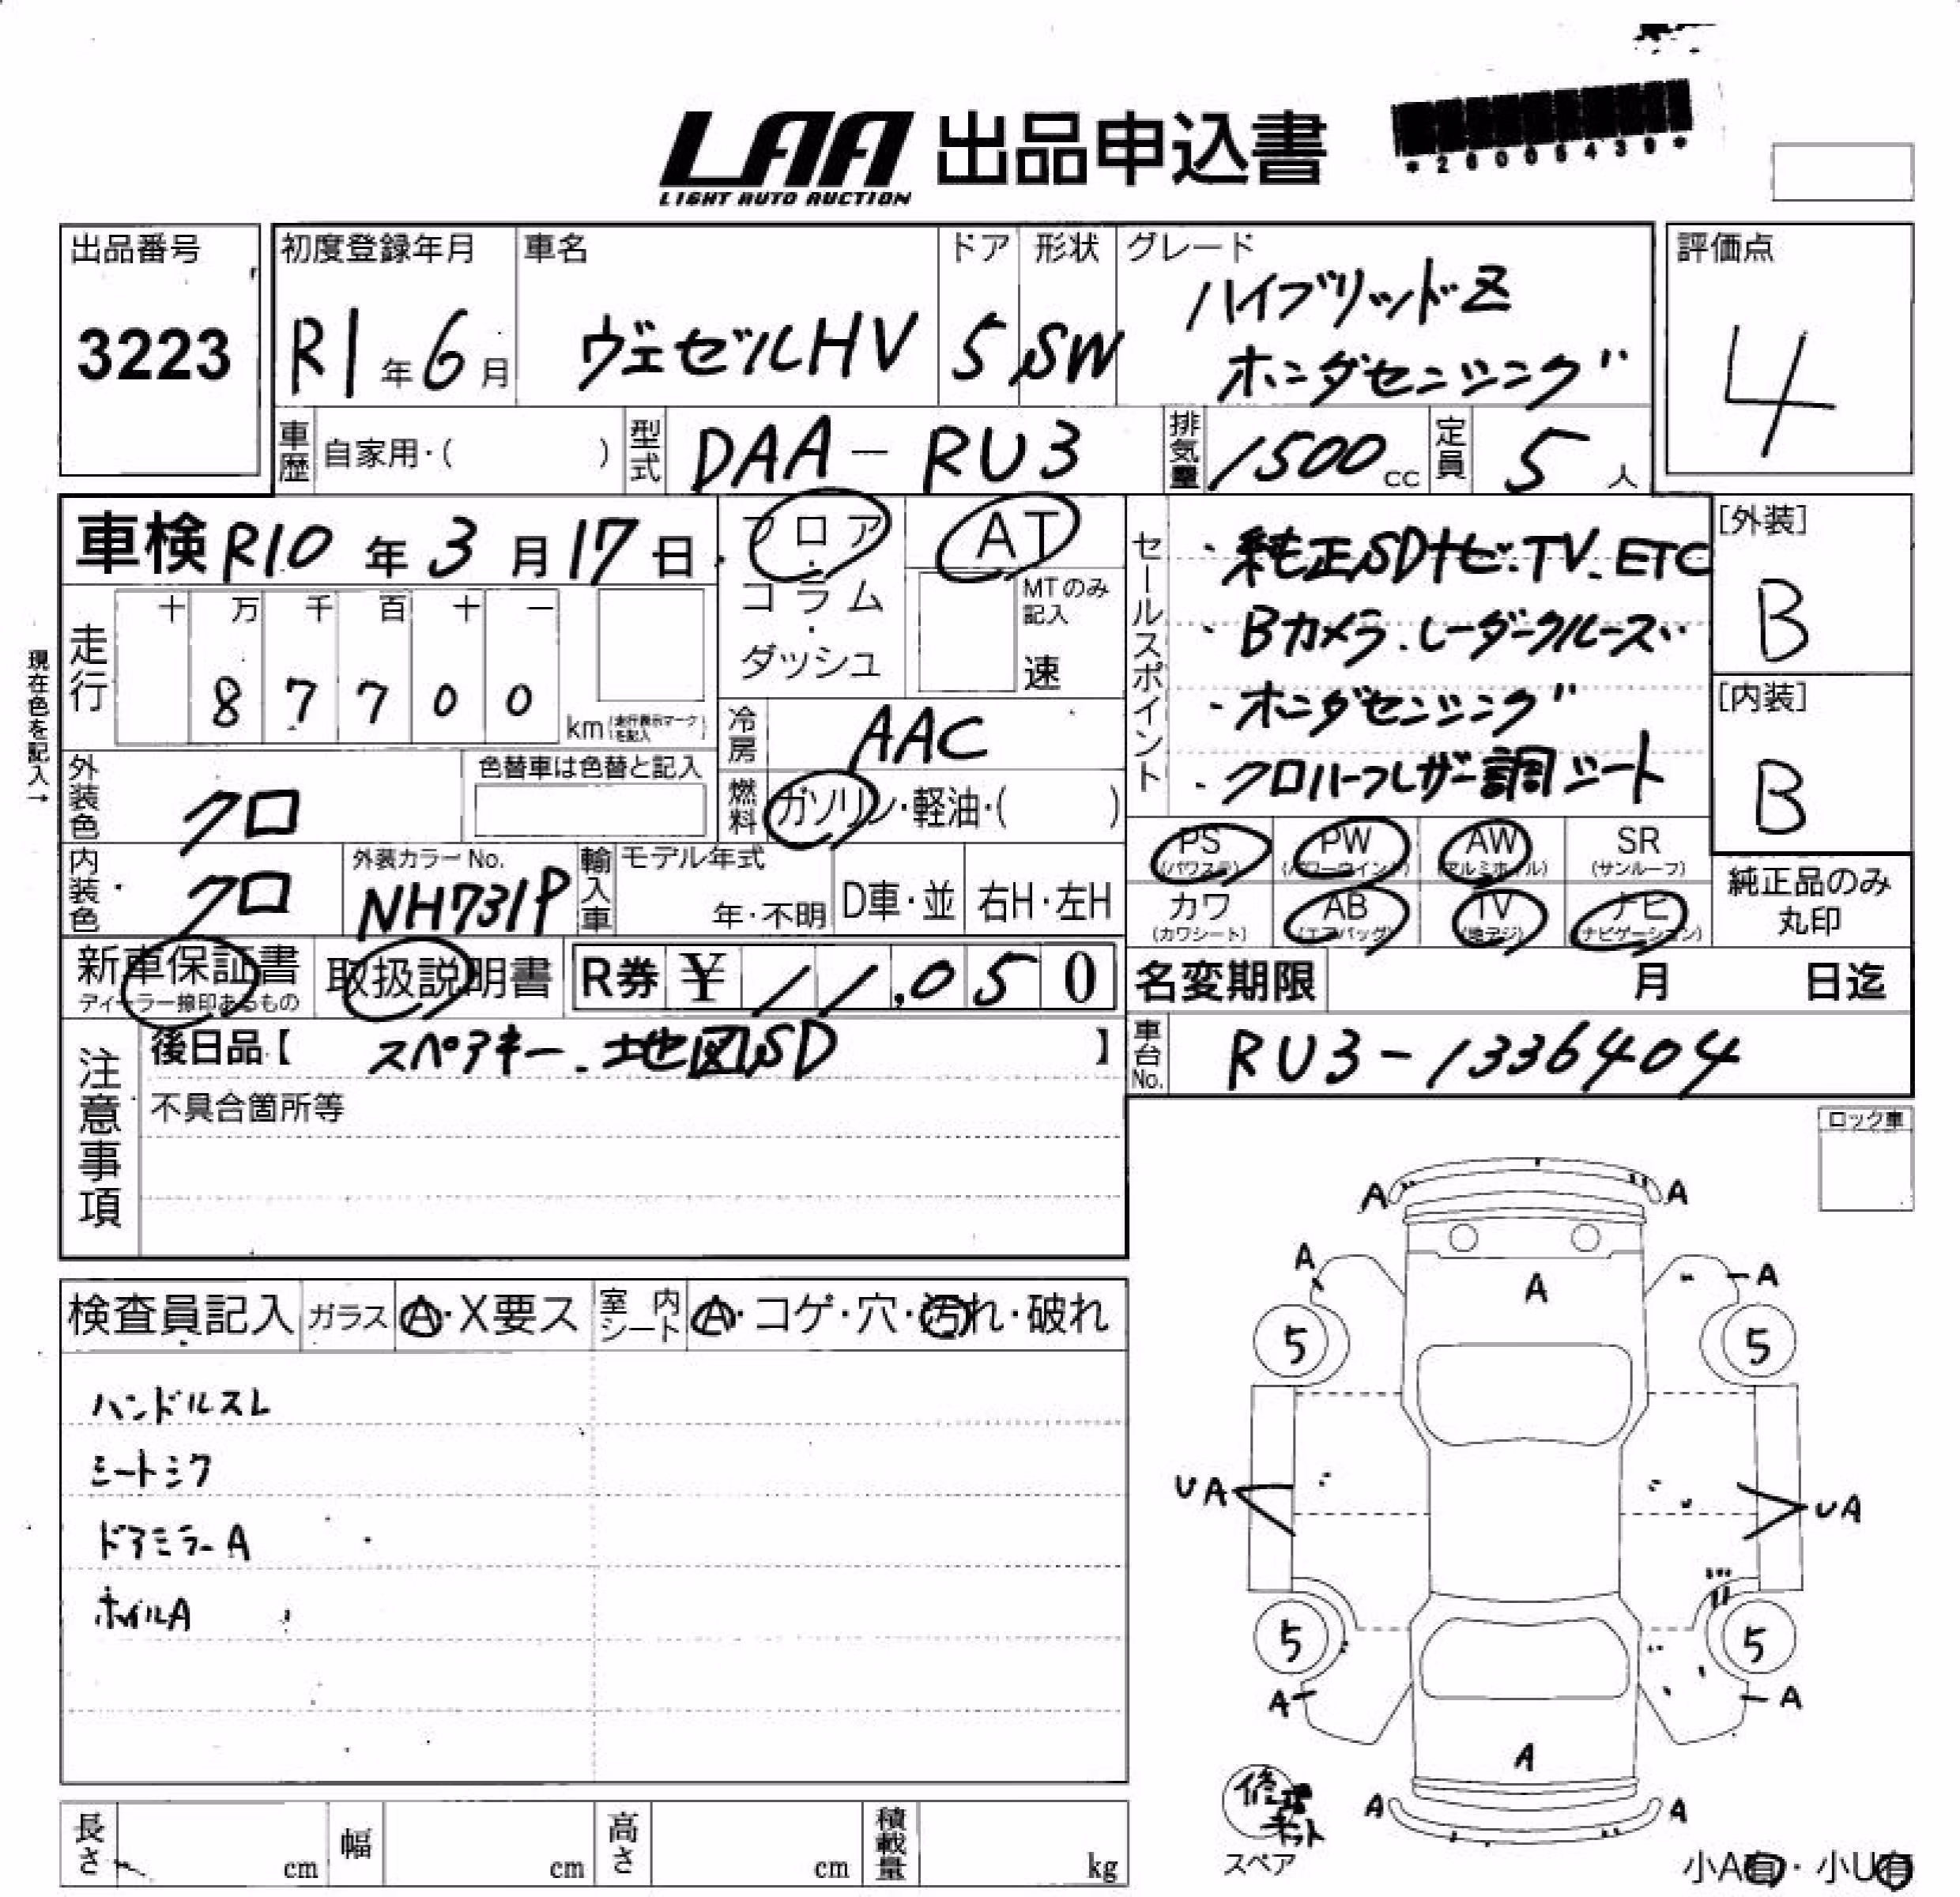 LAA 出品申込書
LIGHT AUTO AUCTION
*26005439*
出品番号
3223
初度登録年月
R1年6月
車名
ヴェゼルHV
ドア
5
形状
SW
グレード
ハイブリッドZ
ホンダセンシング
評価点
4
車歴 自家用・( )
型式 DAA-RU3
排気量 1500cc
定員 5人
車検 R10年3月17日
フロア・コラム・ダッシュ
AT
MTのみ記入
速
現在色を記入→
走行
十 万 千 百 十 一
8 7 7 0 0
km(走行表示マークを記入)
冷房 AAC
燃料 ガソリン・軽油・( )
外装色 クロ
色替車は色替と記入
内装色 クロ
外装カラーNo.
NH731P
輸入車
モデル年式
年・不明
D車・並
右H・左H
セールスポイント
・純正SDナビ・TV. ETC
・Bカメラ. レーダークルーズ
・ホンダセンシング
・クロハーフレザー調シート
[外装]
B
[内装]
B
PS
(パワステ)
PW
(パワーウインド)
AW
(アルミホイル)
SR
(サンルーフ)
カワ
(カワシート)
AB
(エアバッグ)
TV
(地デジ)
ナビ
(ナビゲーション)
純正品のみ
丸印
新車保証書
ディーラー捺印あるもの
取扱説明書
R券 ¥ 11,050
名変期限 月 日迄
注意事項
後日品【 スペアキー. 地図SD 】
不具合箇所等
車台No. RU3-1336404
ロック車
検査員記入
ガラス A・X要ス
室内シート A・コゲ・穴・汚れ・破れ
ハンドルスレ
シートシワ
ドアミラーA
ホイルA
A A
A A A
5 5
UA UA
5 5
A A
A
A A
修理キット
スペア
小A有・小U有
長さ cm
幅 cm
高さ cm
積載量 kg